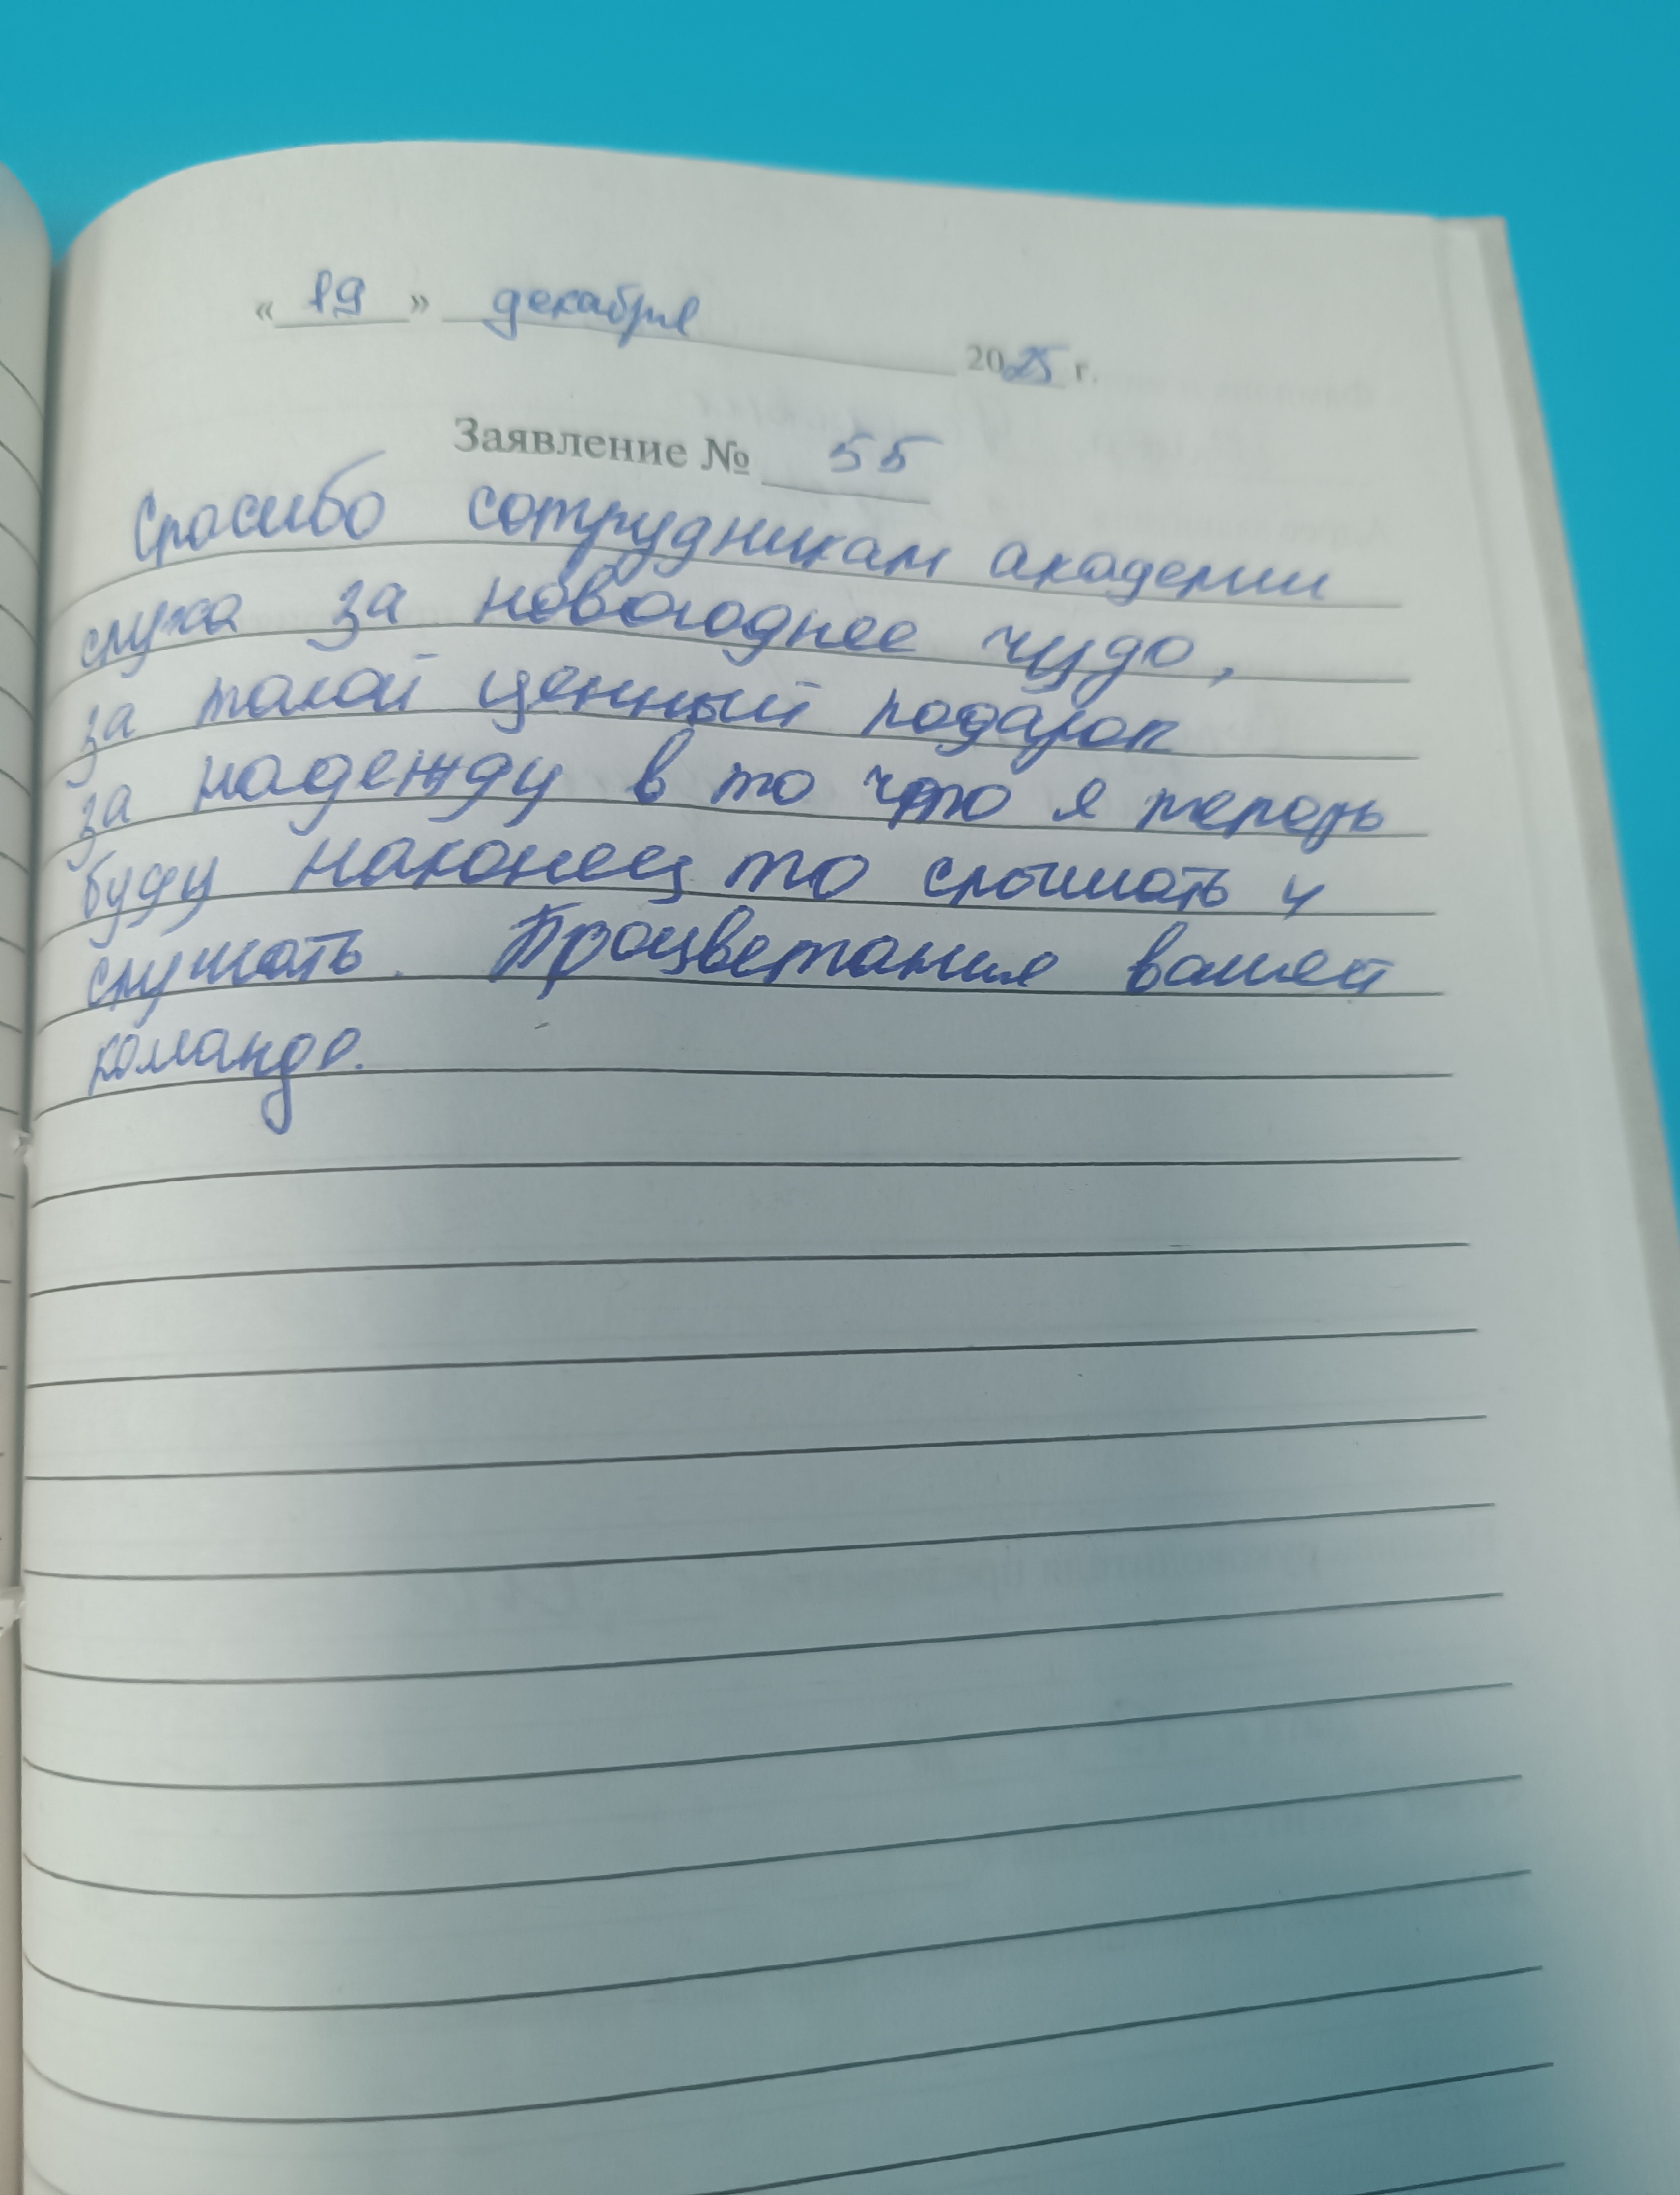 « 19 » декабря 2025 г.
Заявление № 55
Спасибо сотрудникам академии
слуха за новогоднее чудо,
за такой ценный подарок
за надежду в то что я теперь
буду наконец то слышать и
слушать. Процветания вашей
команде.